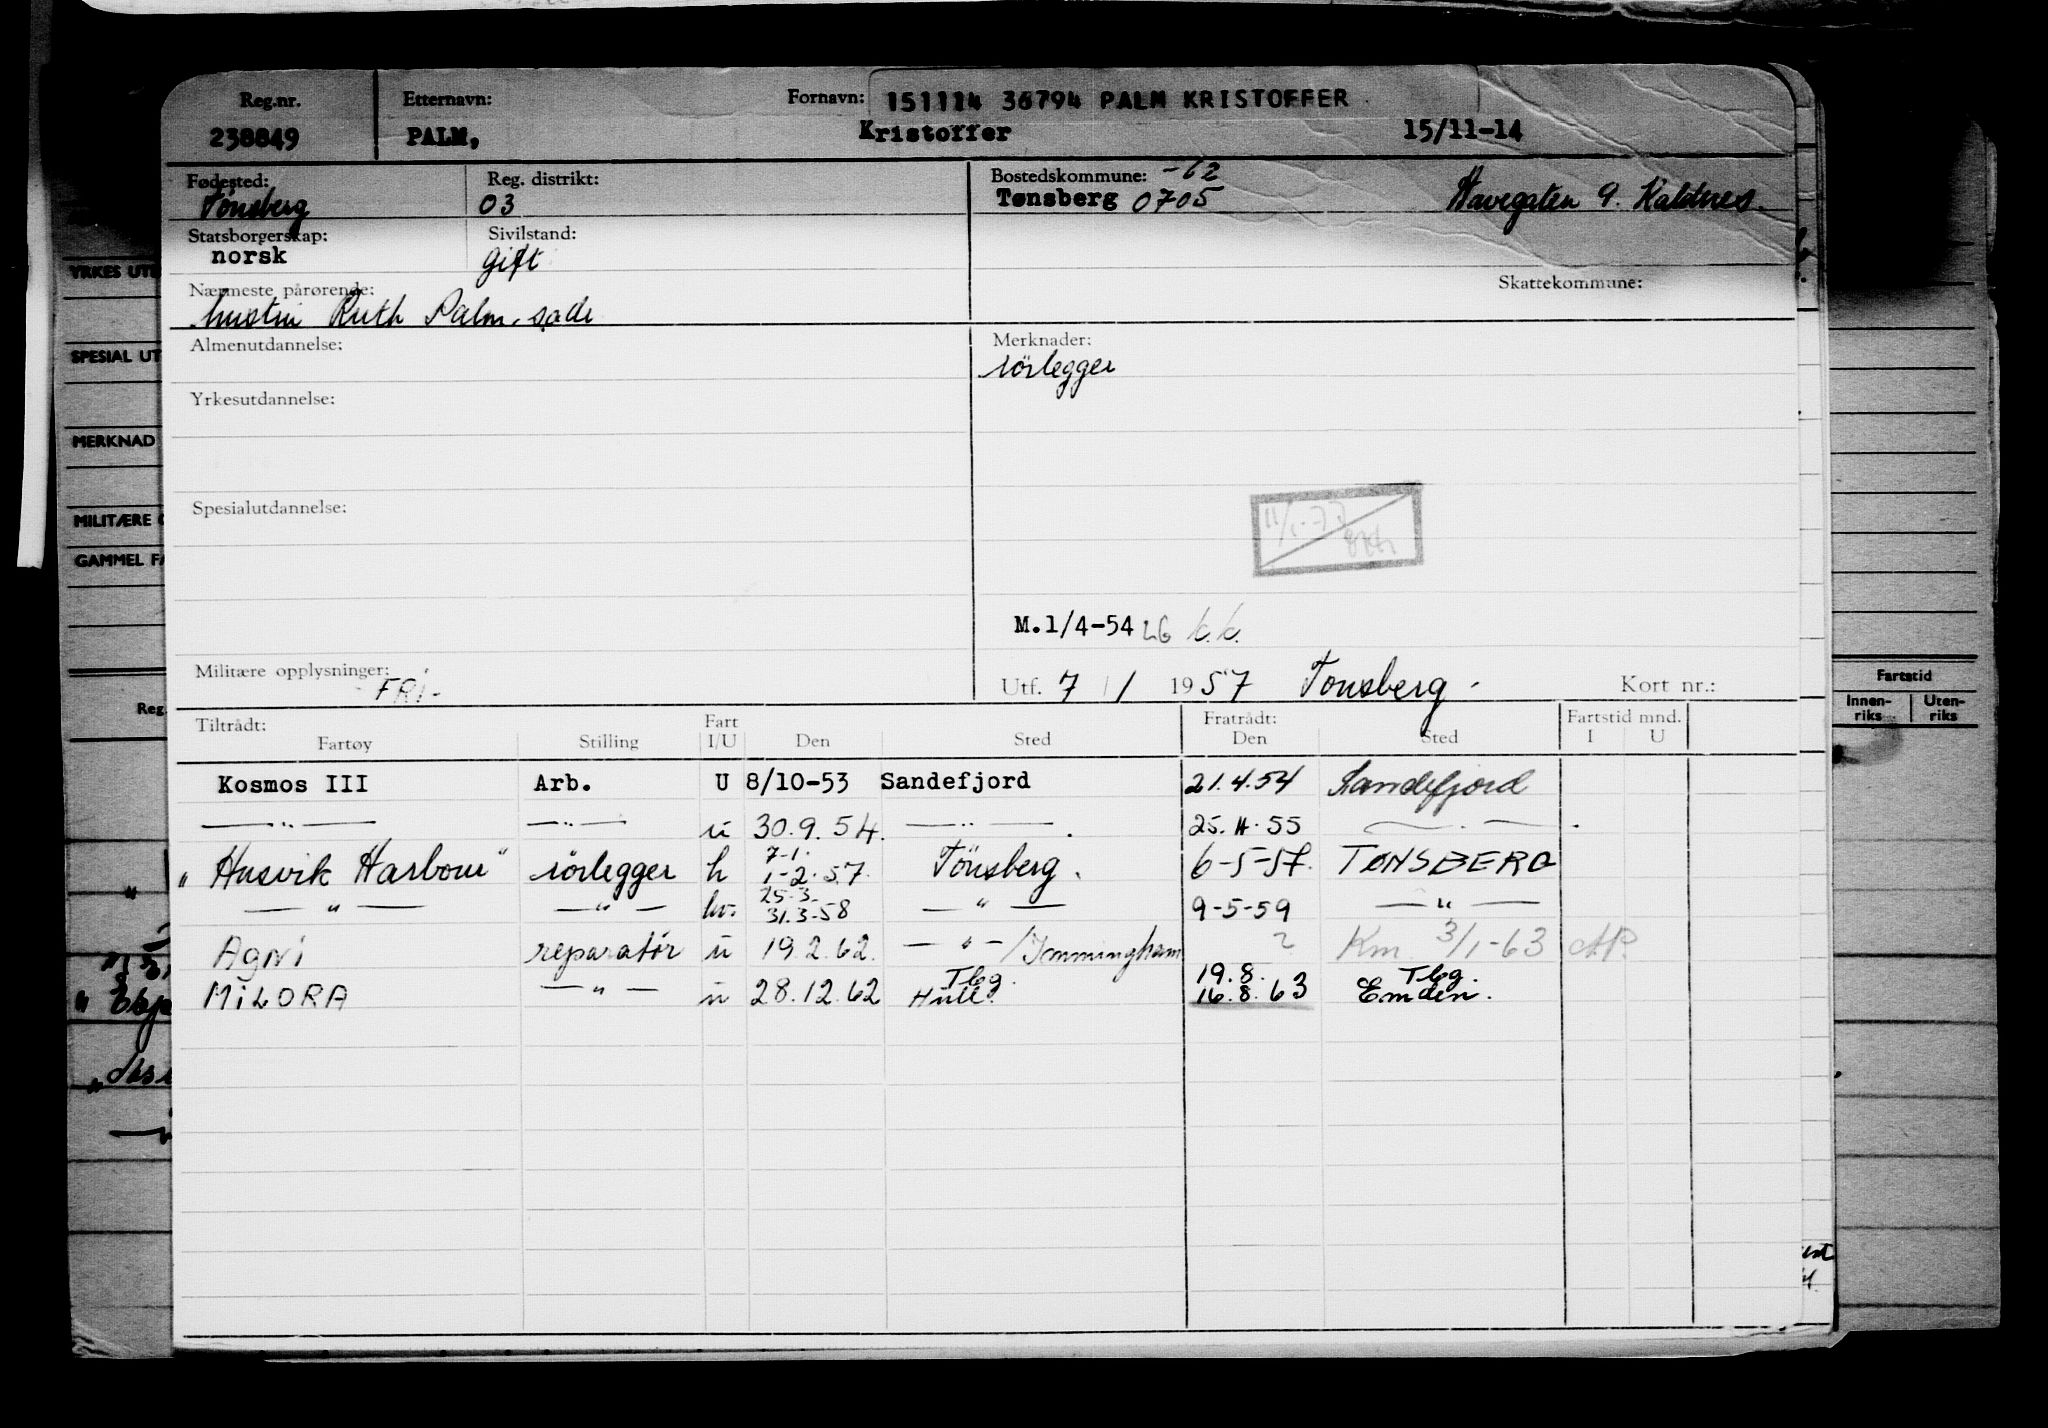 Reg.nr. Etternavn: Fornavn: 151114 36794 PALM KRISTOFFER
238849 PALM, Kristoffer 15/11-14
Fødested: Reg. distrikt: Bostedskommune: -62
Tönsberg 03 Tønsberg 0705 Havegaten 9. Kaldnes.
Statsborgerskap: Sivilstand:
norsk gift
Nærmeste pårørende: Skattekommune:
hustru Ruth Palm, sade
Almenutdannelse: Merknader:
rörlegger
Yrkesutdannelse:
Spesialutdannelse:
11/1-77
M.1/4-54 LG k.k.
Militære opplysninger: FRi-
Utf. 7/1 1957 Tönsberg. Kort nr.:
Tiltrådt: Fart Fratrådt: Fartstid mnd.
Fartøy Stilling I/U Den Sted Den Sted I U
Kosmos III Arb. U 8/10-53 Sandefjord 21.4.54 Sandefjord
—"— —"— u 30.9.54. —"—. 25.4.55 —"—.
7-1.
"Husvik Harbour" rörlegger h 1-2.57. Tönsberg. 6-5-57. TØNSBERG
25-3-
—"— —"— hv. 31.3-58 —"— 9-5-59 —"—
AGNi reparatør u 19.2.62. —"—/Immingham ? Km 3/1-63 AP.
Tbg. 19.8. Tbg
MiLORA —"— u 28.12.62 Hull. 16.8.63 Emden.
YRKES UTE
SPESIAL UT
MERKNAD
MILITÆRE
GAMMEL FA
Reg.
Fartstid
Innen-riks Uten-riks